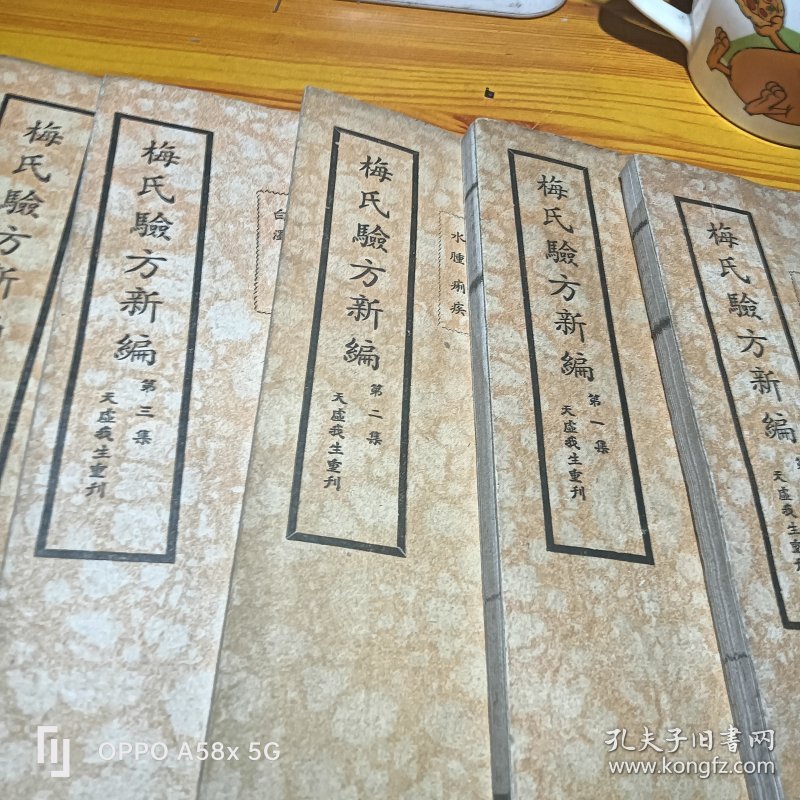 梅氏驗方新
梅氏驗方新編
第三集
天虛我生重刊
白濁
梅氏驗方新編
第二集
天虛我生重刊
水腫 痢疾
梅氏驗方新編
第一集
天虛我生重刊
梅氏驗方新編
天虛我生重刊
OPPO A58x 5G
孔夫子旧書网
www.kongfz.com